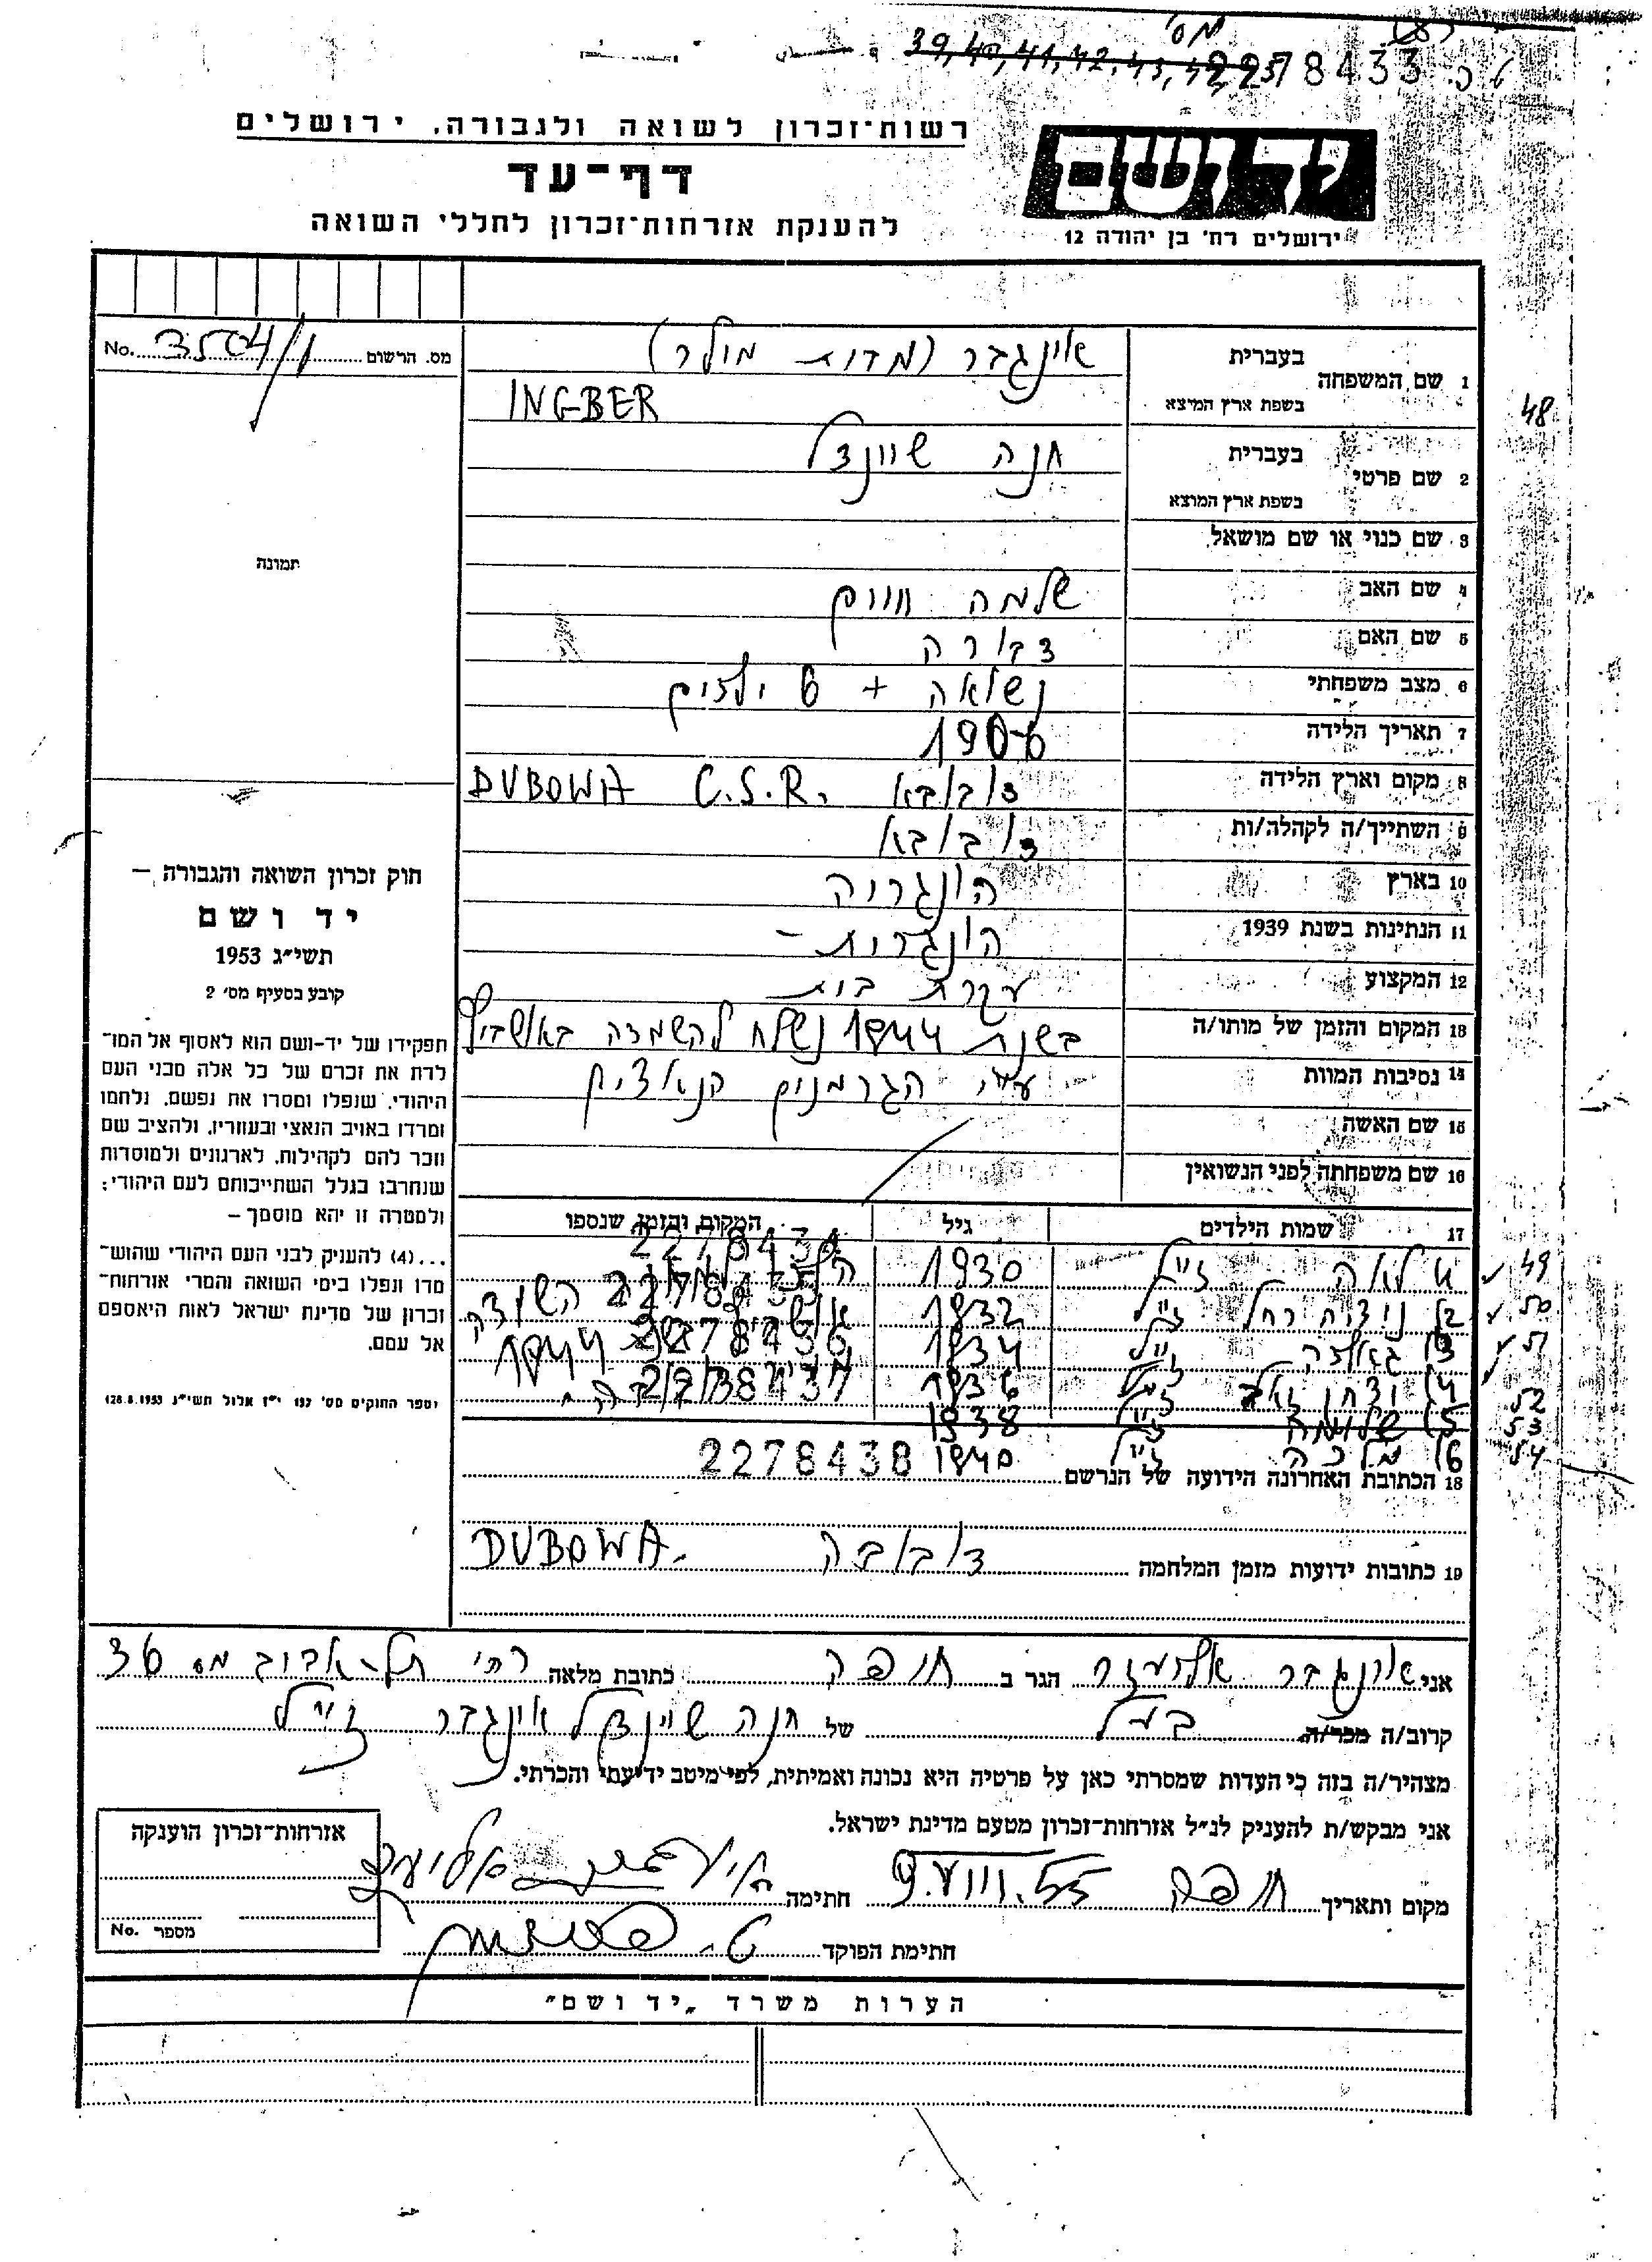 מס'
39, 40, 41, 42, 43,
78433
רשות־זכרון לשואה ולגבורה, ירושלים
יד ושם
דף־עד
להענקת אזרחות־זכרון לחללי השואה
ירושלים רח' בן יהודה 12
מס. הרשום 3504/1 No.
1 שם המשפחה
בעברית אינגבר (מדות מולר)
בשפת ארץ המוצא INGBER
48
2 שם פרטי
בעברית חנה שיינדל
בשפת ארץ המוצא
3 שם כנוי או שם מושאל
תמונה
4 שם האב שלמה חיים
5 שם האם דבורה
6 מצב משפחתי נשואה + 6 ילדים
7 תאריך הלידה 1906
8 מקום וארץ הלידה דובובא C.S.R. DUBOWA
9 השתייך/ה לקהלה/ות דובובא
10 בארץ הונגריה
11 הנתינות בשנת 1939 הונגרית -
12 המקצוע עקרת בית
13 המקום והזמן של מותו/ה בשנת 1944 נשלח להשמדה באושביץ
14 נסיבות המוות ע"י הגרמנים הנאצים
15 שם האשה
16 שם משפחתה לפני הנשואין
17 שמות הילדים גיל המקום והזמן שנספו
לאה ז"ל 1930 49
2) רחל ז"ל 1932 השמדה 50
3) ז"ל 1934 2278436 51
4) ז"ל 1936 1944 2278437 52
5) שלומה ז"ל 1938 53
6) מלכה ז"ל 1940 2278438 54
18 הכתובת האחרונה הידועה של הנרשם
19 כתובות ידועות מזמן המלחמה דובובה DUBOWA.
חוק זכרון השואה והגבורה –
יד ושם
תשי"ג 1953
קובע בסעיף מס' 2
תפקידו של יד-ושם הוא לאסוף אל המו־
לדת את זכרם של כל אלה מבני העם
היהודי, שנפלו ומסרו את נפשם, נלחמו
ומרדו באויב הנאצי ובעוזריו, ולהציב שם
וזכר להם לקהילות, לארגונים ולמוסדות
שנחרבו בגלל השתייכותם לעם היהודי;
ולמטרה זו יהא מוסמך –
...(4) להעניק לבני העם היהודי שהוש־
מדו ונפלו בימי השואה והמרי אזרחות־
זכרון של מדינת ישראל לאות היאספם
אל עמם.
(ספר החוקים מס' 132 י"ז אלול תשי"ג 28.8.1953)
אני אינגבר אליעזר הגר ב חיפה כתובת מלאה רח' תל-אביב מס 36
קרוב/ה מכר/ה בעל של חנה שיינדל אינגבר ז"ל
מצהיר/ה בזה כי העדות שמסרתי כאן על פרטיה היא נכונה ואמיתית, לפי מיטב ידיעתי והכרתי.
אני מבקש/ת להעניק לנ"ל אזרחות־זכרון מטעם מדינת ישראל.
מקום ותאריך חיפה 9.VIII.55 חתימה
חתימת הפוקד
אזרחות־זכרון הוענקה
מספר No.
הערות משרד „יד ושם"